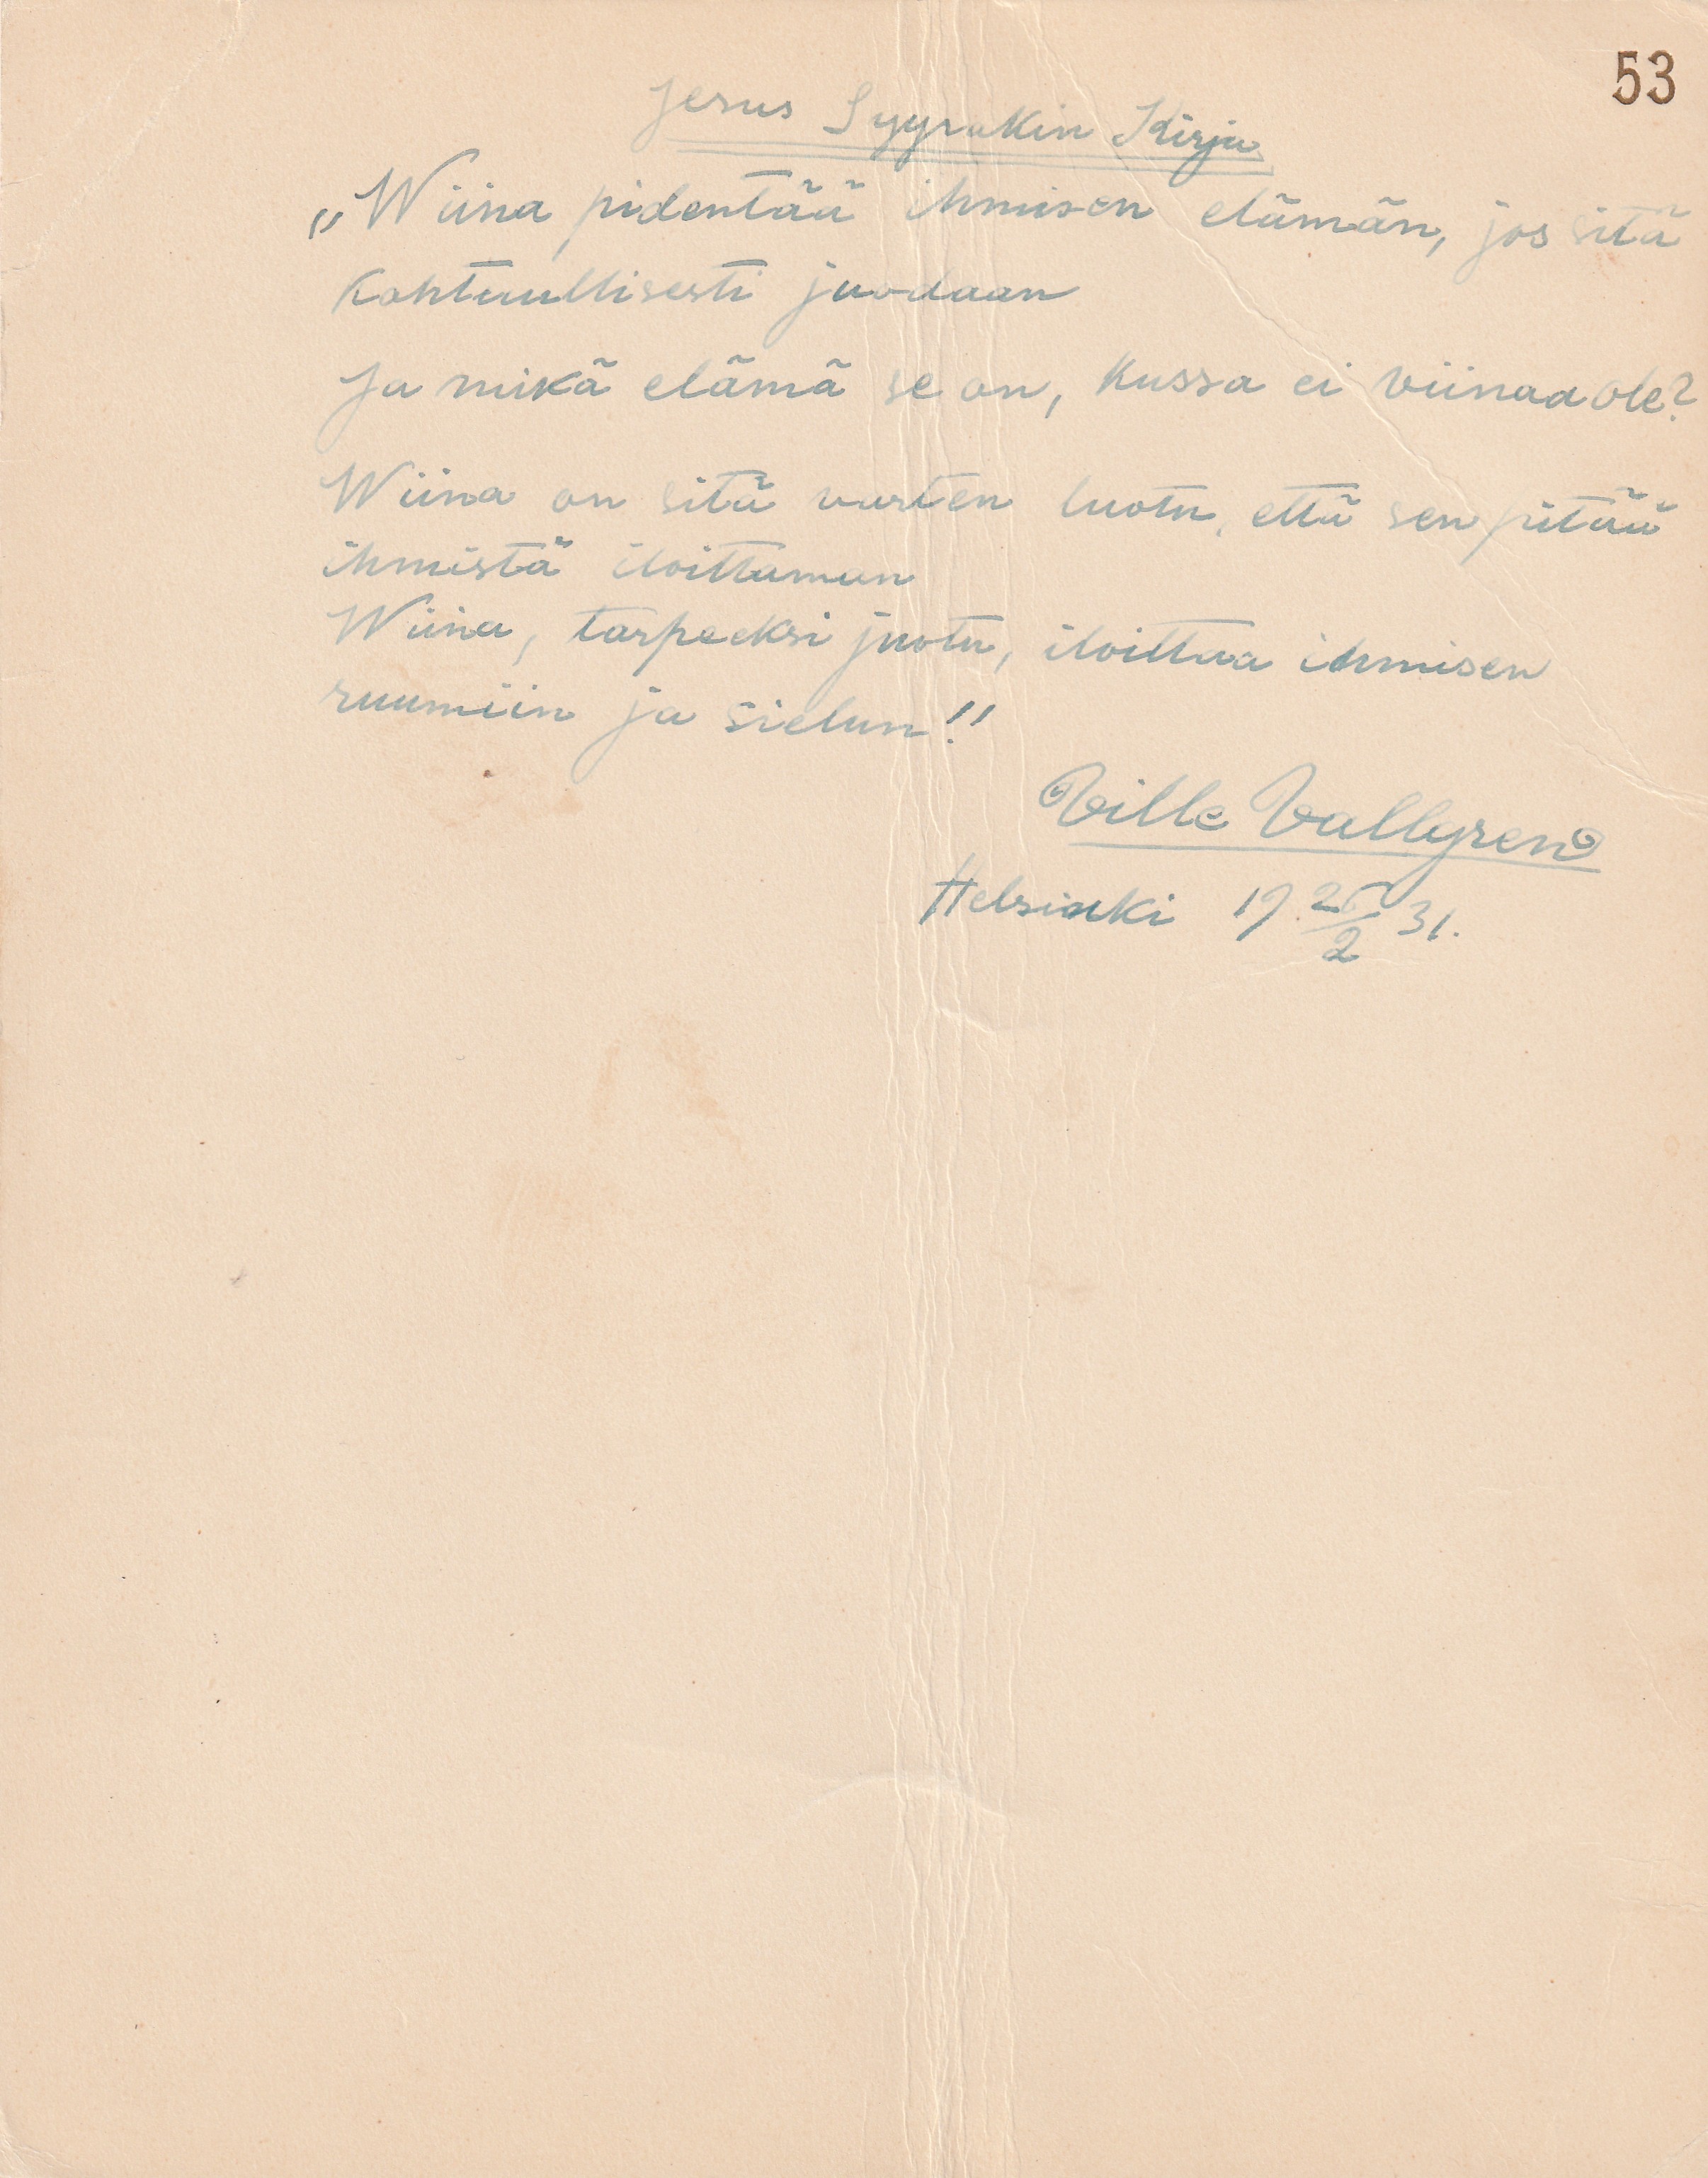 53
Jesus Syyrakin Kirja
„Wiina pidentää ihmisen elämän, jos sitä
Kohtuullisesti juodaan
Ja mikä elämä se on, kussa ei viinaa ole?
Wiina on sitä varten luotu, että sen pitää
ihmistä iloittaman
Wiina, tarpeeksi juotu, iloittaa ihmisen
ruumiin ja sielun!!
Ville Vallgren
Helsinki 19 25/2 31.